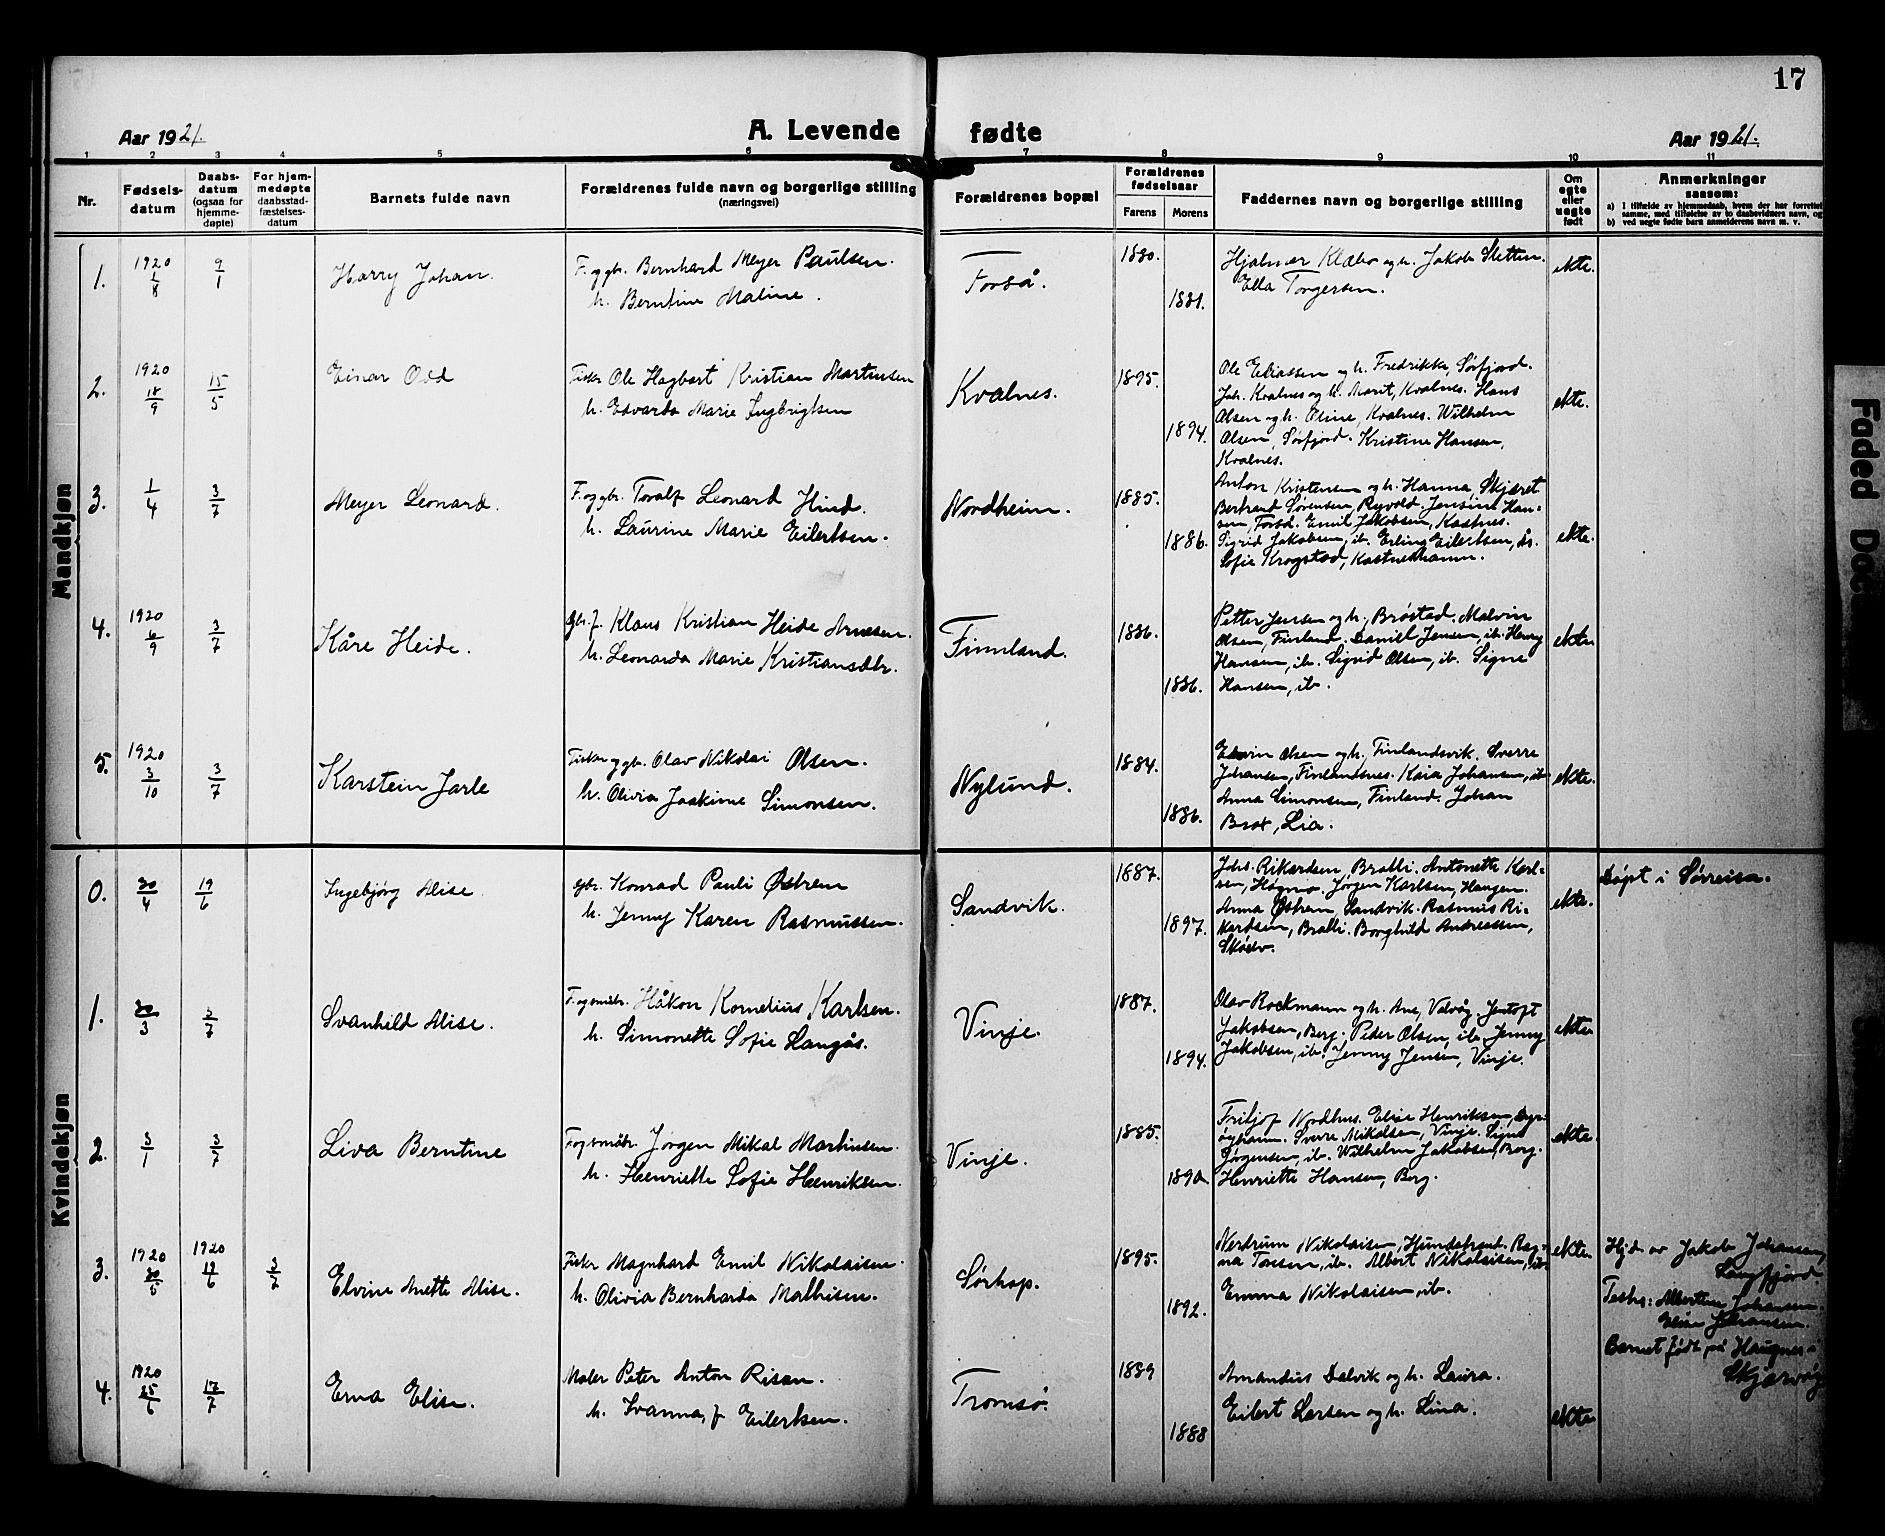 17
Aar 1921.
A. Levende fødte
Aar 1921.
1 2 3 4 5 6 7 8 9 10 11
Nr.
Fødsels-
datum
Daabs-
datum
(ogsaa for
hjemme-
døpte)
For hjem-
medøpte
daabsstad-
fæstelses-
datum
Barnets fulde navn
Forældrenes fulde navn og borgerlige stilling
(næringsvei)
Forældrenes bopæl
Forældrenes
fødselsaar
Farens Morens
Faddernes navn og borgerlige stilling
Om
egte
eller
uegte
født
Anmerkninger
saasom:
a) I tilfælde av hjemmedaab, hvem der har forrettet
samme, med tilføielse av to daabsvidners navn, og
b) ved uegte fødte barn anmelderens navn m. v.
Mandkjøn
1. 1920 1/8 9/1 Harry Johan.
F. og gbr. Bernhard Meyer Paulsen.
h. Berntine Maline.
Forså.
1880.
1881.
Hjalmar Klæbo og h. Jakob Sletten.
Ella Torgersen.
ekte.
2. 1920 18/9 15/5 Einar Odd
Fisker Ole Hagbart Kristian Martinsen
h. Edvarda Marie Ingbrigtsen
Kvalnes.
1895.
1894.
Ole Eliassen og h. Fredrikke, Sørfjord.
Joh. Kvalnes og h. Marit, Kvalnes. Hans
Olsen og h. Eline, Kvalnes. Wilhelm
Olsen, Sørfjord. Kristine Hansen,
Kvalnes.
ekte.
3. 1/4 3/7 Meyer Leonard.
F. og gbr. Toralf Leonard Hind.
h. Laurine Marie Eilertsen.
Nordheim.
1885.
1886.
Anton Kristensen og h. Hanna, Skjæret
Bertrand Sørensen, Ryvold. Jensine Han-
sen, Forså. Emil Jakobsen, Kastnes.
Sigrid Jakobsen, ib. Erling Eilertsen,
Sofie Krogstad, Kastneshamn.
ekte.
4. 1920 6/9 3/7 Kåre Heide.
Gbr. f. Klaus Kristian Heide Arnesen.
h. Leonarda Marie Kristiansdtr.
Finnland.
1886.
1886.
Petter Jensen og h., Brøstad. Malvin
Olsen, Finland. Daniel Jensen, ib. Henry
Hansen, ib. Sigrid Olsen, ib. Signe
Hansen, ib.
ekte.
5. 1920 3/10 3/7 Karstein Jarle
Fisker og gbr. Olav Nikolai Olsen.
h. Olivia Joakime Simonsen.
Nylund.
1884.
1886.
Edvin Olsen og h. Finlandsvik. Sverre
Johansen, Finlandsnes. Kaia Johansen, ib.
Anna Simonsen, Finland. Johan
Brox, Lia.
ekte.
Kvindekjøn
0. 30/4 19/6 Ingebjørg Alise.
gbr. Konrad Pauli Østrem
h. Jenny Karen Rasmussen.
Sandvik.
1887.
1897.
Johs. Rikardsen, Bralli. Antonette Karl-
sen, Høgmo. Jørgen Karlsen, Haugen.
Anna Østrem, Sandvik. Rasmus Ri-
kardsen, Bralli. Borghild Andreassen,
ekte.
Døpt i Sørreisa.
1. 30/3 3/7 Svanhild Alise.
F. og småbr. Håkon Kornelius Karlsen.
h. Simonette Sofie Langås.
Vinje.
1887.
1894.
Olav Rockmann og h. Ane, Valvåg. Jentoft
Jakobsen, Berg. Peder Olsen, ib. Jenny
Jakobsen, ib. Jenny Jensen, Vinje.
ekte
2. 3/1 3/7 Liva Berntine
F. og småbr. Jørgen Mikal Martinsen.
h. Henriette Sofie Henriksen.
Vinje.
1885.
1890.
Fritjof Nordhus. Elise Henriksen, Dyr-
øyhamn. Sverre Mikalsen, Vinje. Signe
Jørgensen, ib. Wilhelm Jakobsen, Berg.
Henriette Hansen, Berg.
ekte.
3. 1920 30/5 1920 19/6 3/7 Elvine Anette Alise.
Fisker Magnhard Emil Nikolaisen.
h. Olivia Bernharda Mathisen.
Sørhop.
1895.
1892.
Nerdrum Nikolaisen, Hundstrand. Rag-
na Tonsen, ib. Albert Nikolaisen, ib.
Emma Nikolaisen, ib.
ekte.
Hjd. av Jakob Johansen,
Langfjord
Testes: Albertine Johansen.
Eline Johansen.
Barnet født på Haugnes i
Skjærvøy
4. 1920 25/6 17/7 Erna Elise.
Maler Peter Anton Risan.
h. Ivanna, f. Eilertsen.
Tromsø.
1889
1888
Amandus Dalvik og h. Laura.
Eilert Larsen og h. Lina.
ekte
Faded Doc